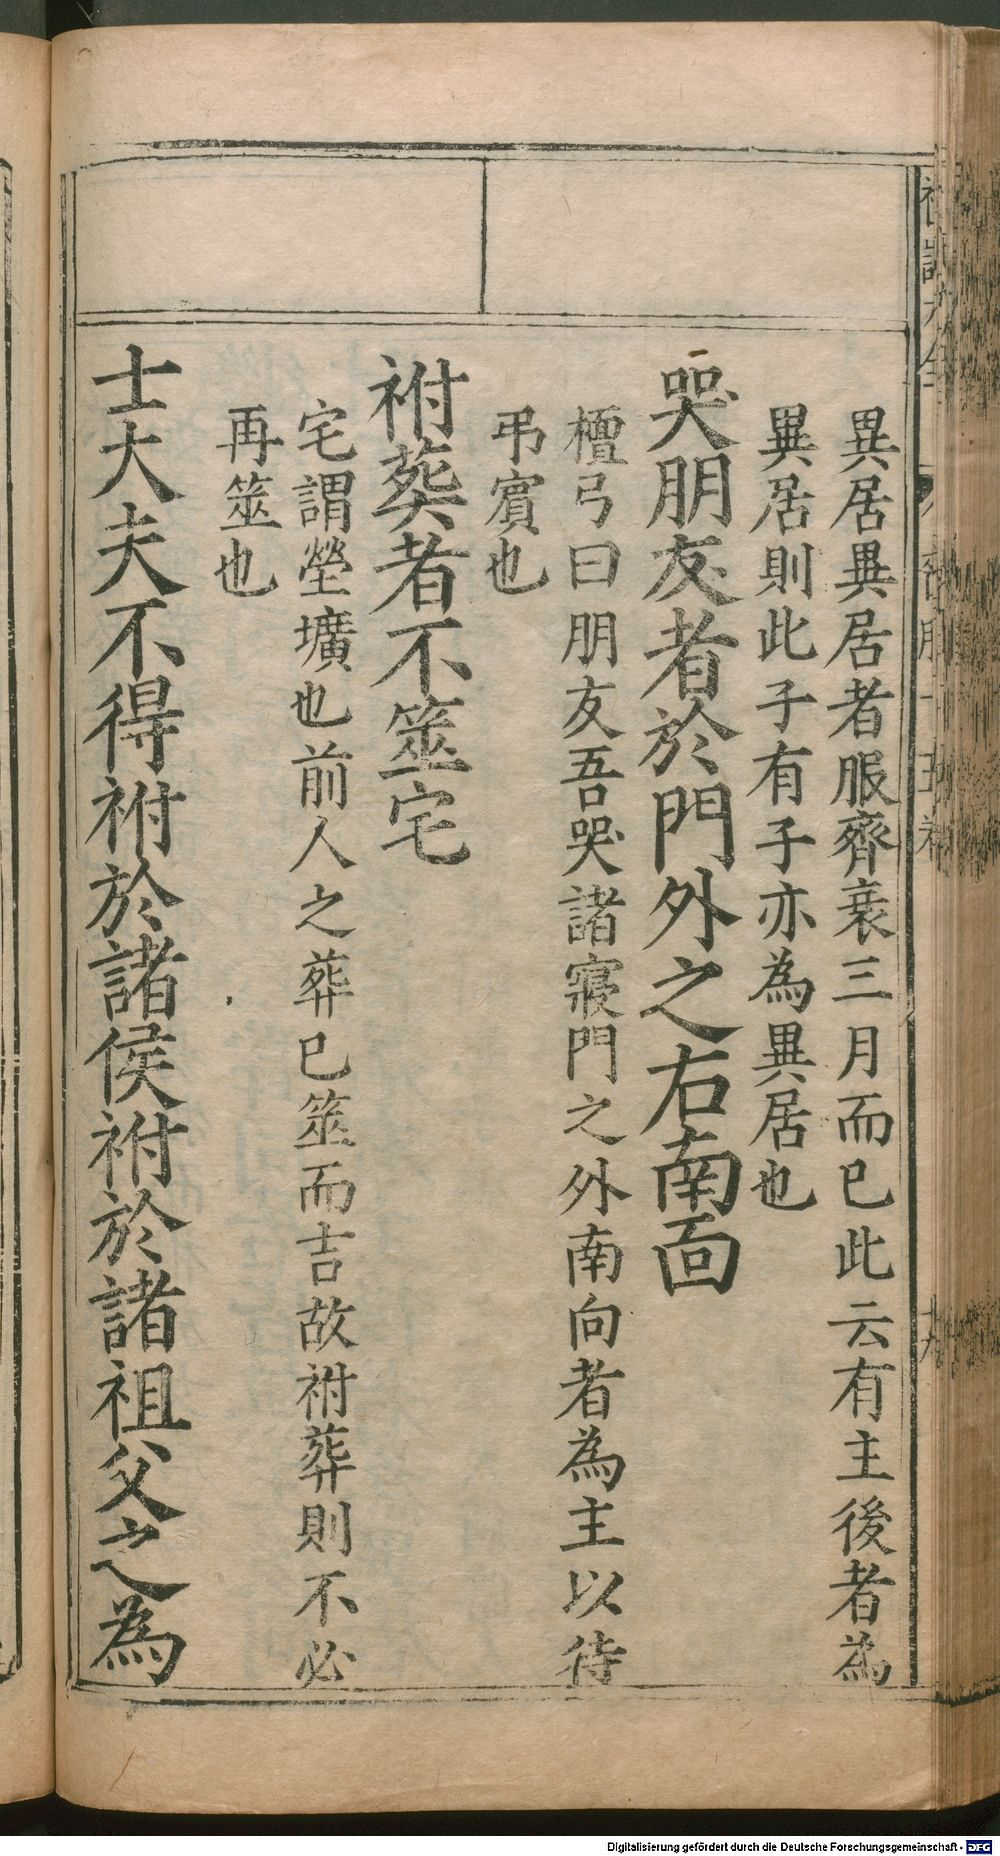 異居異居者服齊衰三月而已此云有主後者為
異居則此子有子亦為異居也
哭朋友者於門外之右南面
檀弓曰朋友吾哭諸寢門之外南向者為主以待
弔賓也
祔葬者不筮宅
宅謂塋壙也前人之葬已筮而吉故祔葬則不必
再筮也
士大夫不得祔於諸侯祔於諸祖父之為
Digitalisierung gefördert durch die Deutsche Forschungsgemeinschaft - DFG